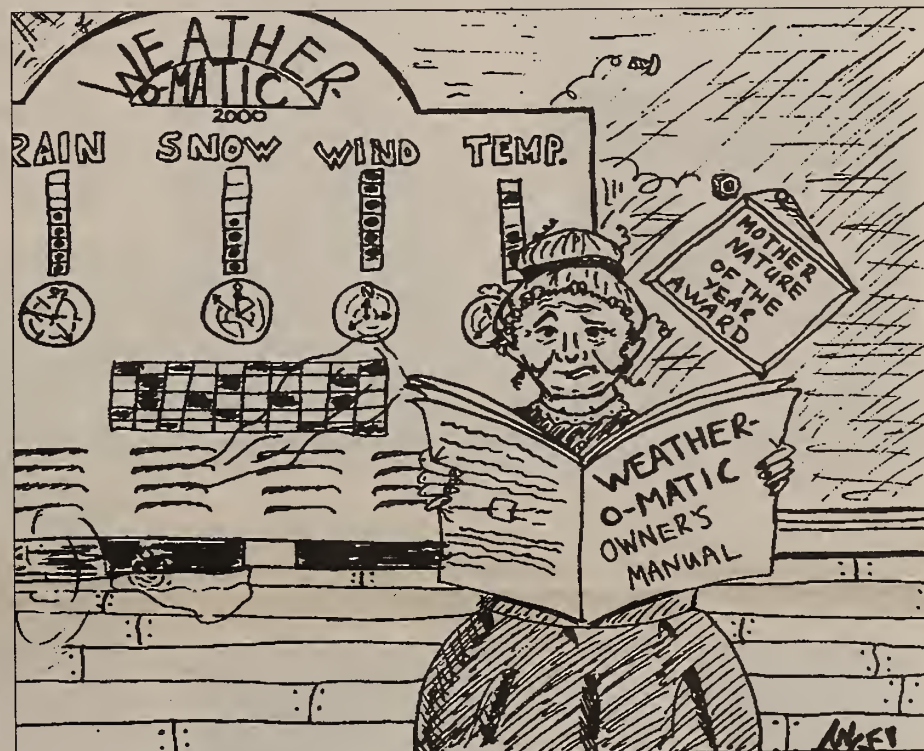 WEATHER-
O-MATIC
2000
RAIN SNOW WIND TEMP.
MOTHER
NATURE
OF THE
YEAR
AWARD
WEATHER-
O-MATIC
OWNER'S
MANUAL